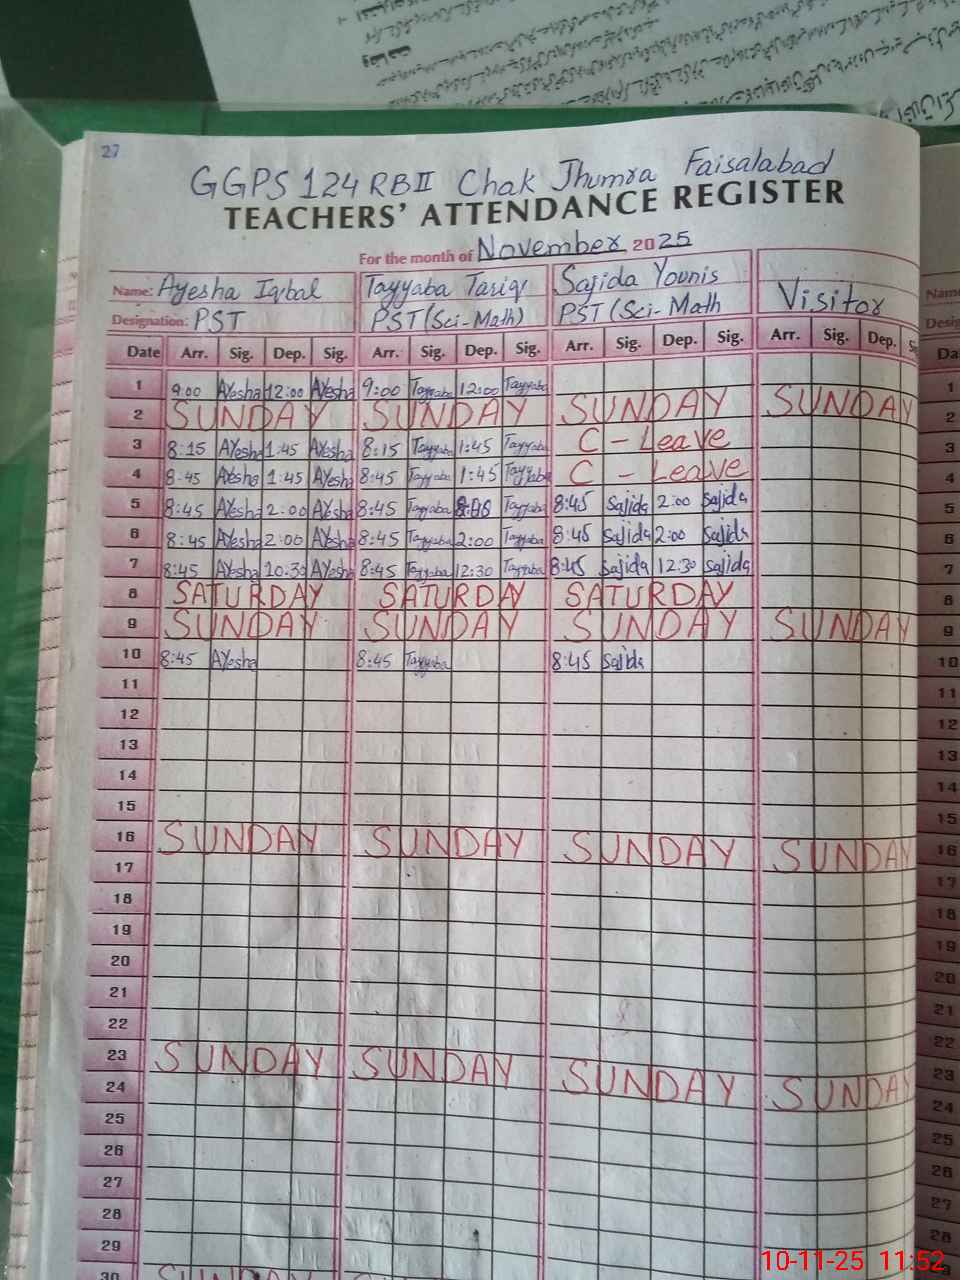 27
GGPS 124 RB II Chak Jhumra Faisalabad
TEACHERS' ATTENDANCE REGISTER
For the month of November 2025
Name: Ayesha Iqbal Tayyaba Tariq Sajida Younis Visitor
Designation: PST PST (Sci-Math) PST (Sci-Math
Date Arr. Sig. Dep. Sig. Arr. Sig. Dep. Sig. Arr. Sig. Dep. Sig. Arr. Sig. Dep.
1 9:00 Ayesha 12:00 Ayesha 9:00 Tayyaba 12:00 Tayyaba
2 SUNDAY SUNDAY SUNDAY SUNDAY
3 8:15 Ayesha 1:45 Ayesha 8:15 Tayyaba 1:45 Tayyaba C - Leave
4 8:45 Ayesha 1:45 Ayesha 8:45 Tayyaba 1:45 Tayyaba C - Leave
5 8:45 Ayesha 2:00 Ayesha 8:45 Tayyaba Tayyaba 8:45 Sajida 2:00 Sajida
6 8:45 Ayesha 2:00 Ayesha 8:45 Tayyaba 2:00 Tayyaba 8:45 Sajida 2:00 Sajida
7 8:45 Ayesha Ayesha 8:45 Tayyaba 12:30 Tayyaba 8:45 Sajida 12:30 Sajida
8 SATURDAY SATURDAY SATURDAY
9 SUNDAY SUNDAY SUNDAY SUNDAY
10 8:45 Ayesha 8:45 Tayyaba 8:45 Sajida
11
12
13
14
15
16 SUNDAY SUNDAY SUNDAY SUNDAY
17
18
19
20
21
22
23 SUNDAY SUNDAY SUNDAY SUNDAY
24
25
26
27
28
29
30
Name
Desig
Da
1
2
3
4
5
6
7
8
9
10
11
12
13
14
15
16
17
18
19
20
21
22
23
24
25
26
27
28
10-11-25 11:52